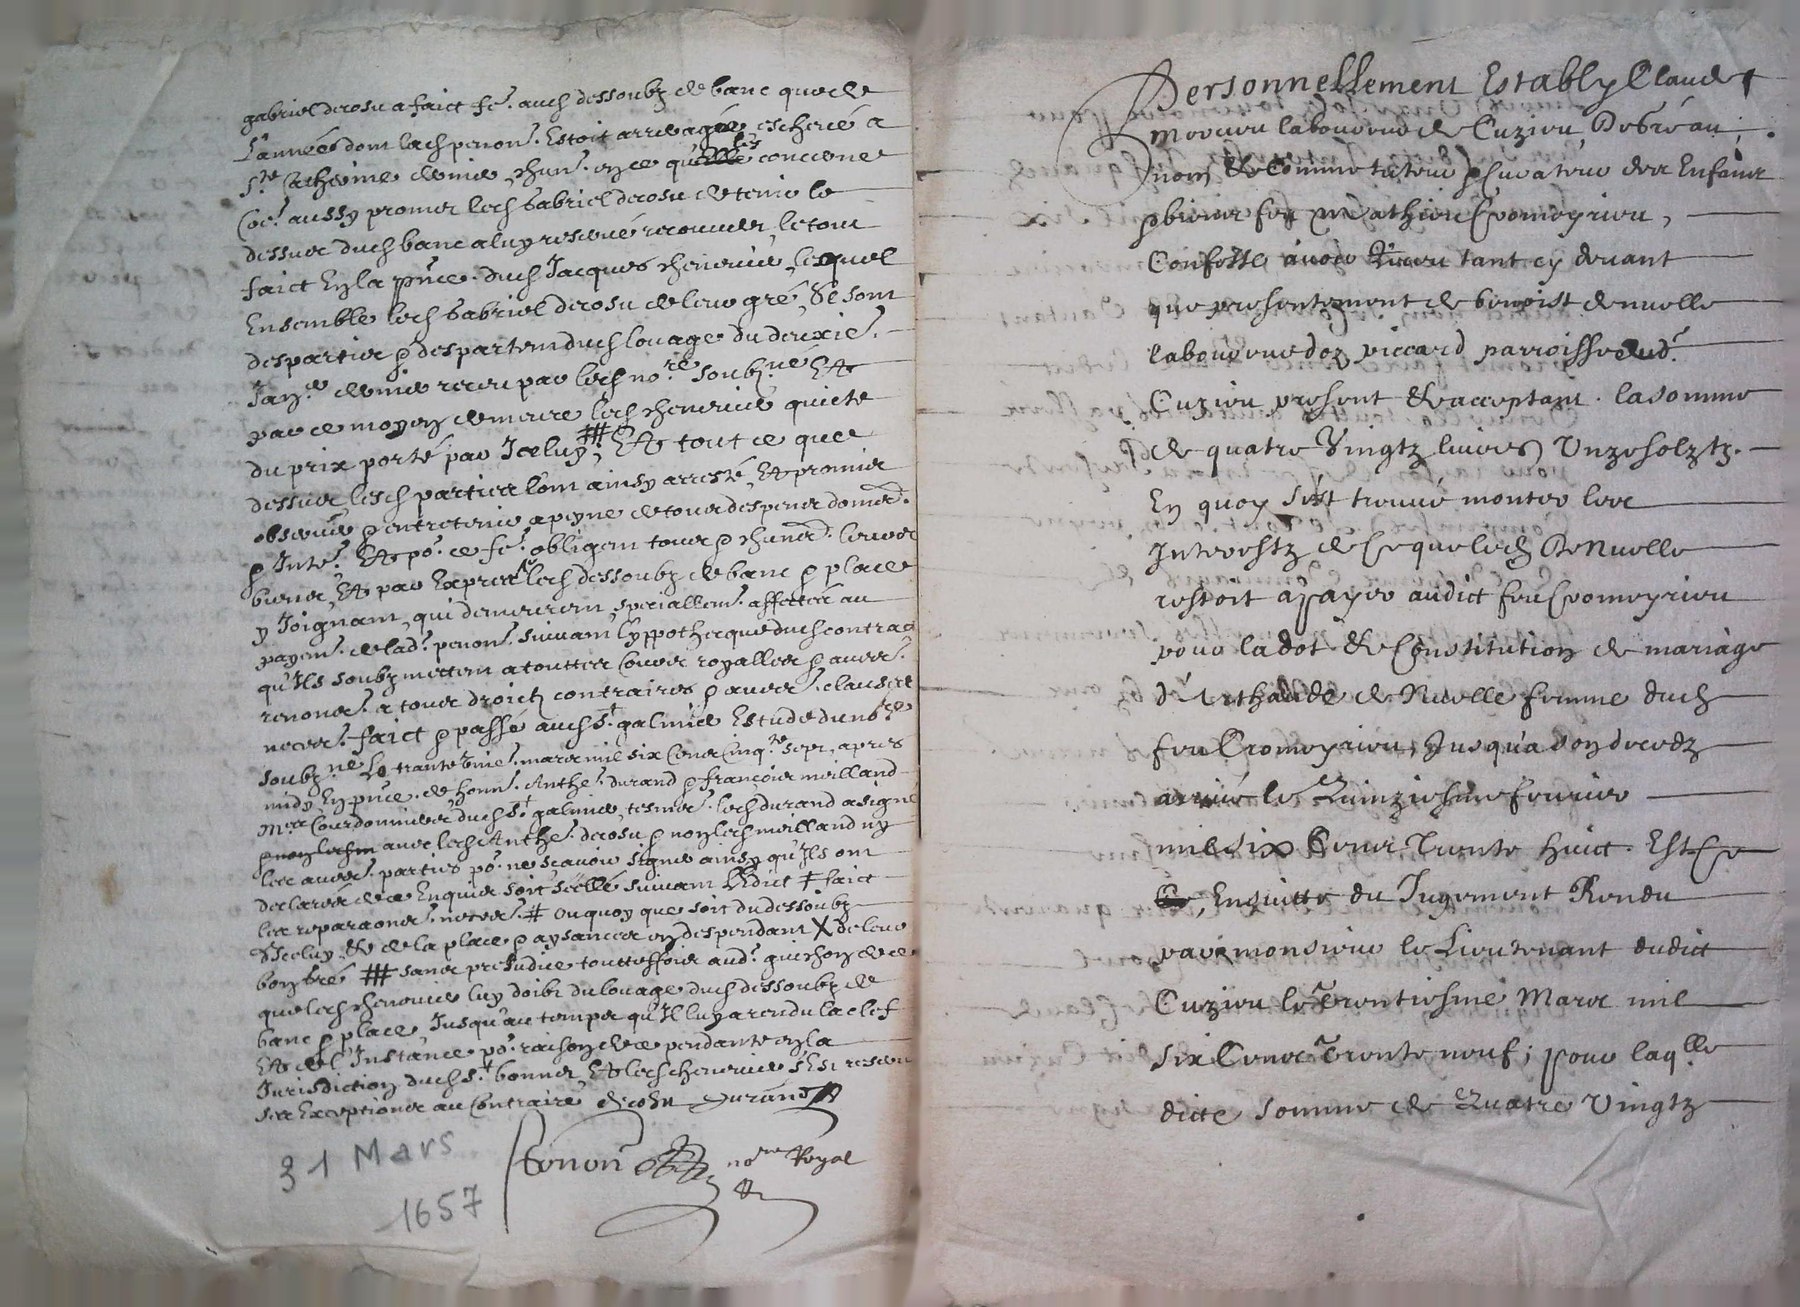 gabriel derosu a faict fe. auch dessoubz de banc que de
L'année dont lach penon. Estoit arreragée escheüe a
Ste Catherine derniere, en ce qu'elles concerne
Coe. aussy promer lech Gabriel derosu de tenir le
dessus duch banc a luy reservé recouvrer, le tout
faict En la pnce. duch Jacques chenevier, lesquel
Ensemble lech Gabriel derosu de leur gré, Se sont
despartis & despartent duch louage du deuxie.
Janr. dernier receu par lech nore. soubzne Et
par ce moyen demeure lech chenevier quicte
du prix porté par Iceluy, # Et tout ce que
dessus lesch parties l'ont ainsy arresté, Et promis
observer & entretenir a peyne de tous despens domed.
& Inte. Et po. ce fe. obligent tous & chuns. leurs
biens, Et par Exprès lech dessoubz de banc & place
y Joignant, qui demeurent speciallemt. affectés au
payemt. de lad. penon. suivant l'yppotheque duch contract
qu'Ils soubzmettent a touttes Cours royalles & aues.
renonce. a tous droicts contraires & aues. clauses
neces. faict & passé auch St galmier Estude du nore.
soubzne Le trante Vnie. mars mil six Cens Cinqte. sept, apres
midy En pnce. de honn. Anthe. durand & françois meilland
Mes Courdonniers duch St galmier, tesmoi. lech durand a signé
avec lech Anthe. derosu & non lech meilland ny
les aues. parties po. ne scavoir signer ainsy qu'Ils ont
declaré de ce Enquis soit scellé suivant l'Edict ‡ faict
les reparaons. neces. # ou quoy que soit du dessoubz
d'Iceluy, & de la place & aysances en despendant X de leur
bon gré ### sans prejudice touttesfois aud. guichon de ce
que lech chenevier luy doibt du louage duch dessoubz de
banc & place Jusqu'au temps qu'Il luy a rendu la clef
Et de l'Instance po. raison de ce pendante en la
Jurisdiction duch St bonnet, Et lech chenevier s'Est reservé
ses Exceptions au Contraire derosu durand
nore Royal
31 Mars
1657
Personnellement Estably Claude
laboureur de Cuzieu
nom & comme tuteur & Curateur des Enfans
& biens feu Mathieu Cromeyrieu,
Confesse avoir Receu tant cy devant
que presentement de benoist denuelle
laboureur de viccard parroisse dud.
Cuzieu present & acceptant. la somme
de quatre Vingtz livres Vnze solz tz.
En quoy s'est trouvé monter les
Interestz de Ce que lech Denuelle
restoit a payer audict feu Cromeyrieu
pour la dot & Constitution de mariage
d'Anthaude de Nuelle femme duch
feu Cromeyrieu, Jusqu'a son decedz
arrivé le Quinziesme feuvrier
mil six Cens Trente huict. Est Ce
Ensuitte du Jugement Rendu
par monsieur le Lieutenant dudict
Cuzieu le Trentiesme Mars mil
six Cens Trente neuf; pour laqlle
dicte somme de Quatre Vingtz